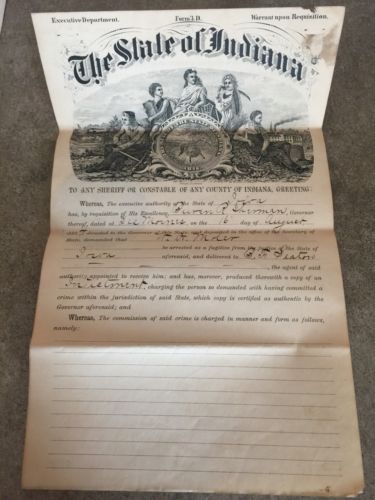 Executive Department. Form 3 D. Warrant upon Requisition.
The State of Indiana
TO ANY SHERIFF OR CONSTABLE OF ANY COUNTY OF INDIANA, GREETING:
Whereas, The executive authority of the State of Iowa
has, by requisition of His Excellency, Buren R Sherman, Governor
thereof, dated at Des Moines on the day of August
State, demanded that
Iowa be arrested as a fugitive from the justice of the State of
aforesaid, and delivered to Seaton
, the agent of said
authority appointed to receive him; and has, morover, produced therewith a copy of an
Indictment charging the person so demanded with having committed a
crime within the jurisdiction of said State, which copy is certified as authentic by the
Governor aforesaid; and
Whereas, The commission of said crime is charged in manner and form as follows,
namely: